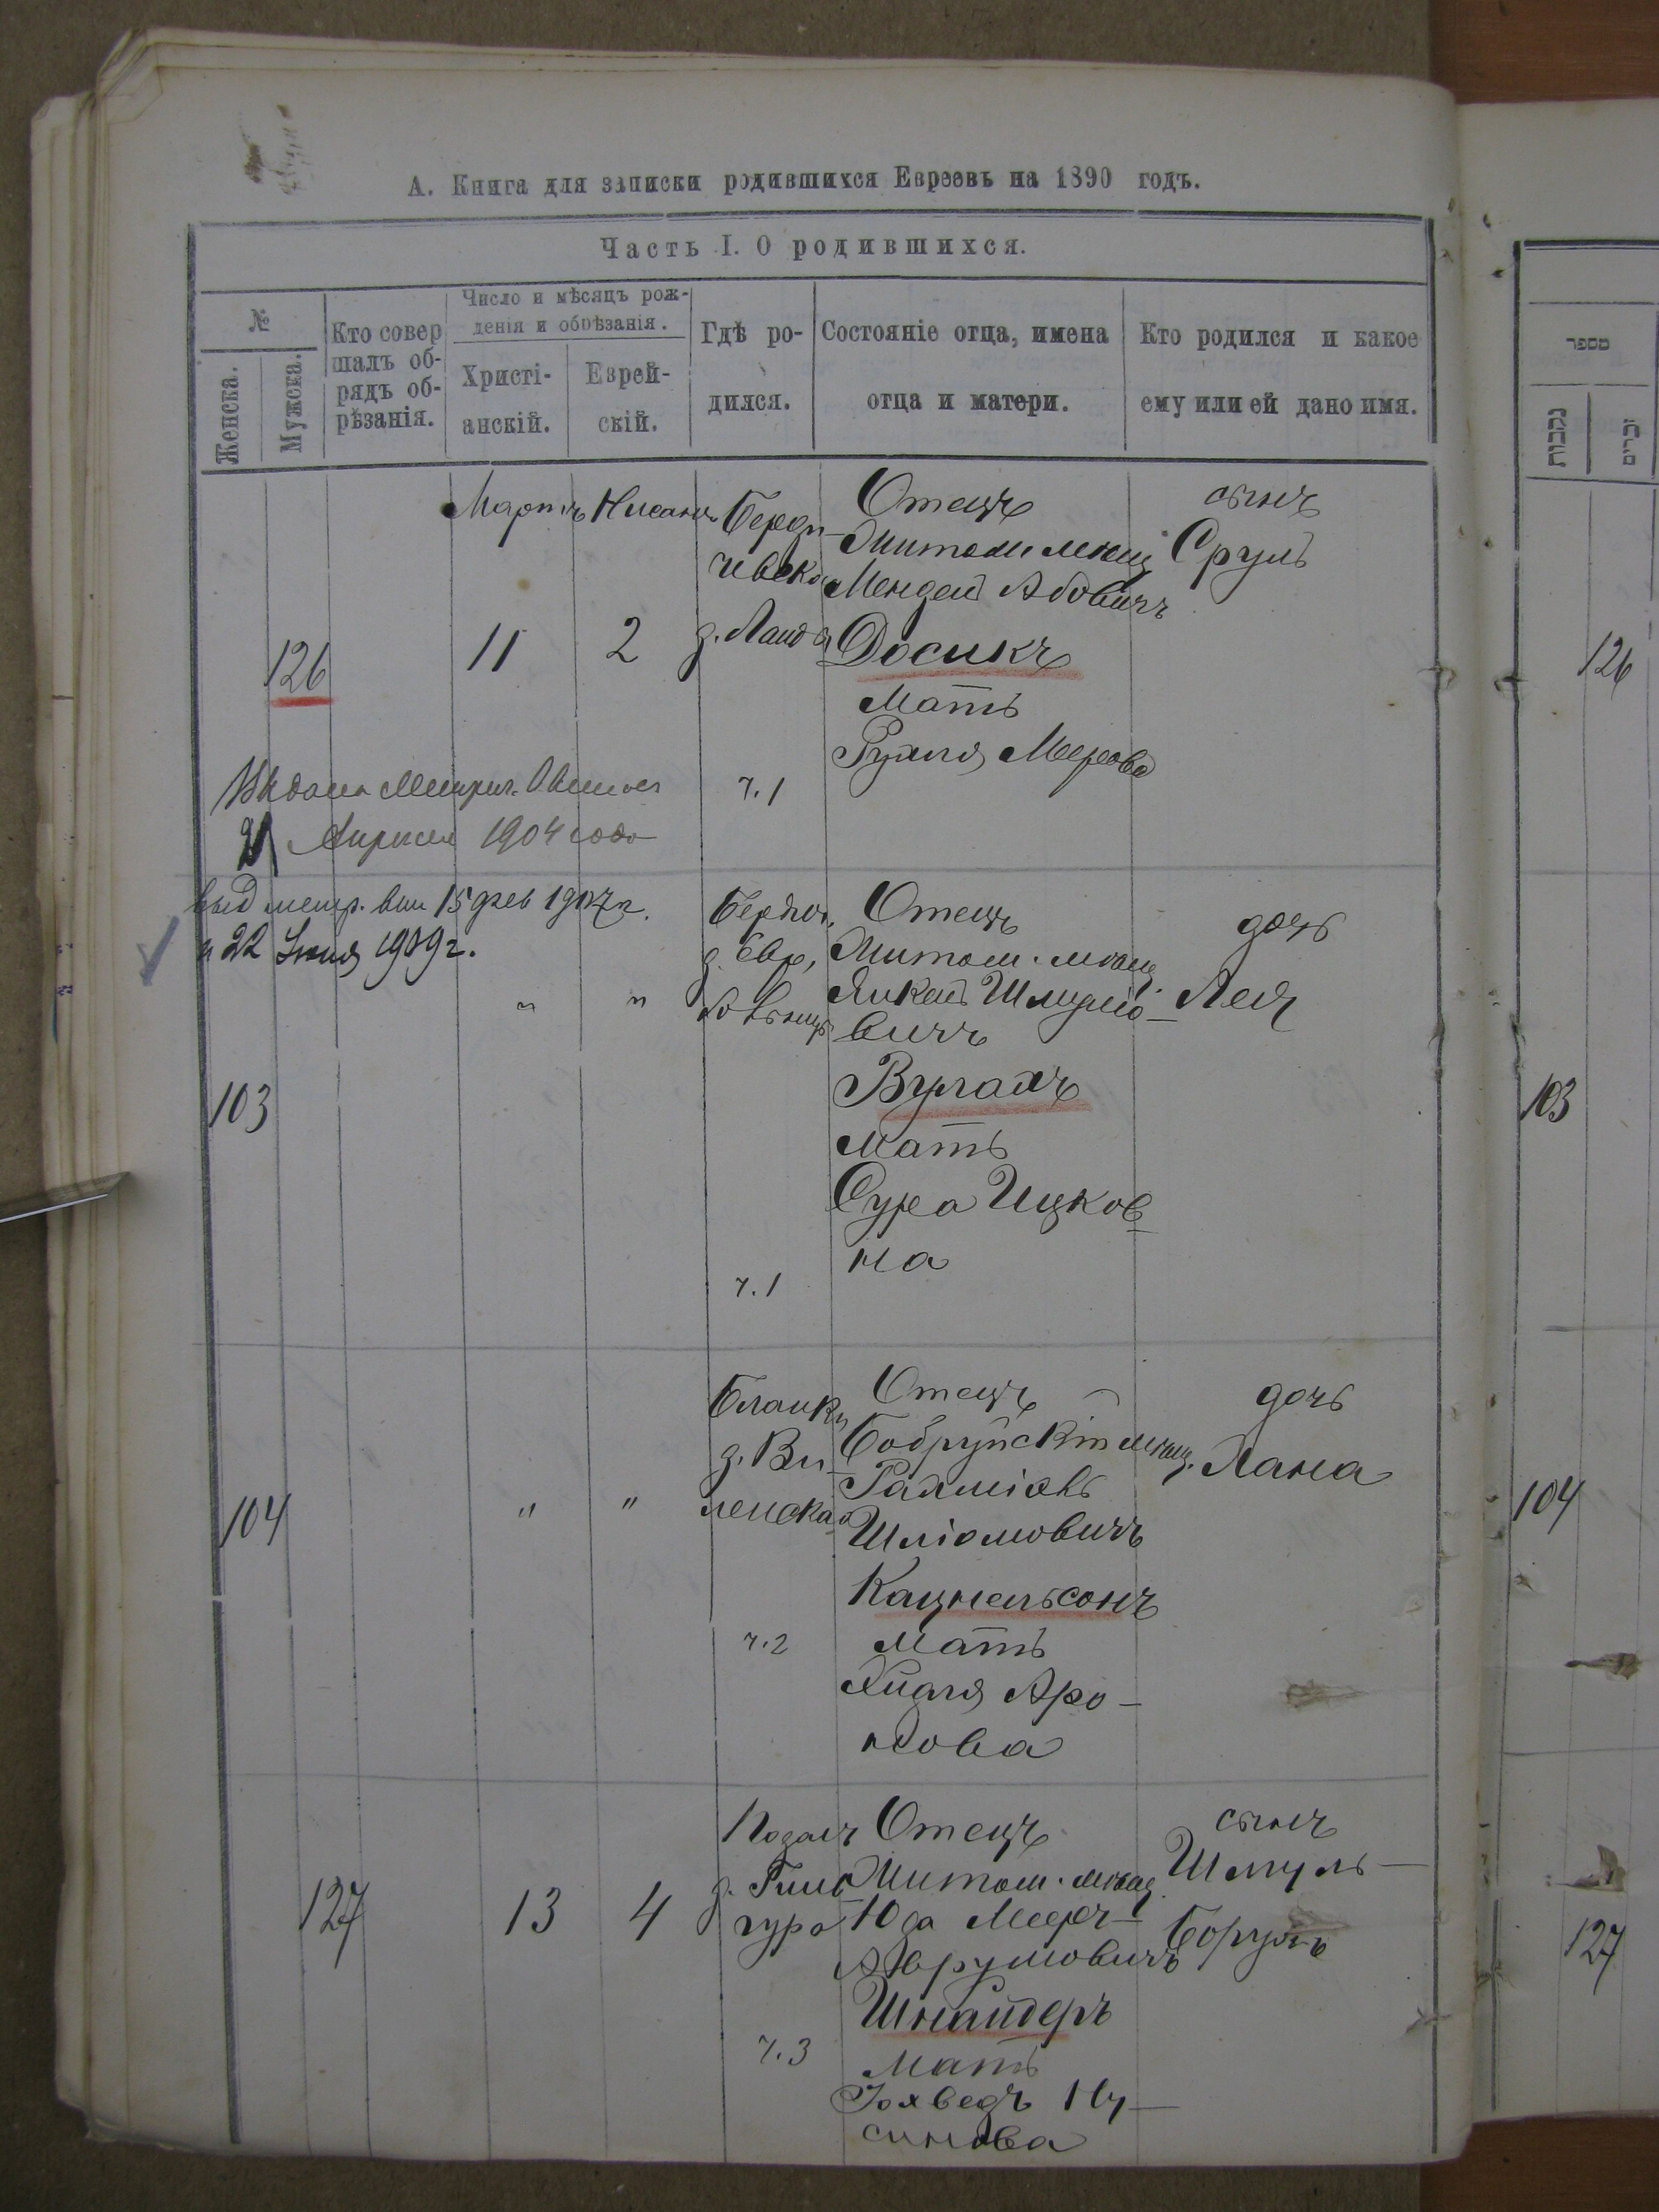 А. Книга для записки родившихся Евреевъ на 1890 годъ.
Часть I. О родившихся.
№
Женска.
Мужска.
Кто совер
шалъ об-
рядъ об-
рѣзанія.
Число и мѣсяцъ рож-
денія и обрѣзанія.
Христі-
анскій.
Еврей-
скій.
Гдѣ ро-
дился.
Состояніе отца, имена
отца и матери.
Кто родился и какое
ему или ей дано имя.
126
Мартъ
11
Нисанъ
2
Берди-
чевско
д. Ландо
ч.1
Отецъ
Житом мѣщ
Мендель Абовичъ
Досикъ
Мать
Рухля Меерова
сынъ
Сруль
Выдана Метрич.
Апреля 1904 года
Выд метр. вып 15 фев 1907 г.
и 22 Іюня 1909 г.
103
"
"
Бердич.
д. Евр,
ч.1
Отецъ
Житом. мѣщ.
Янкель Шмуло-
вичъ
Вугахъ
Мать
Сура Ицков-
на
дочь
Лея
104
"
"
д. Ви-
ленская
ч.2
Отецъ
Бобруйскій мѣщ.
Рахміэль
Шліомовичъ
Кацнельсонъ
Мать
Аро-
нова
дочь
Хана
127
13
4
д. Гиль
ч.3
Отецъ
Житом. мѣщ.
Юда Мееръ-
Аврумовичъ
Шнайдеръ
Мать
Іохведъ Ну-
синова
сынъ
Шмуль-
Борухъ
מספר
נקבות
זכרים
126
103
104
127